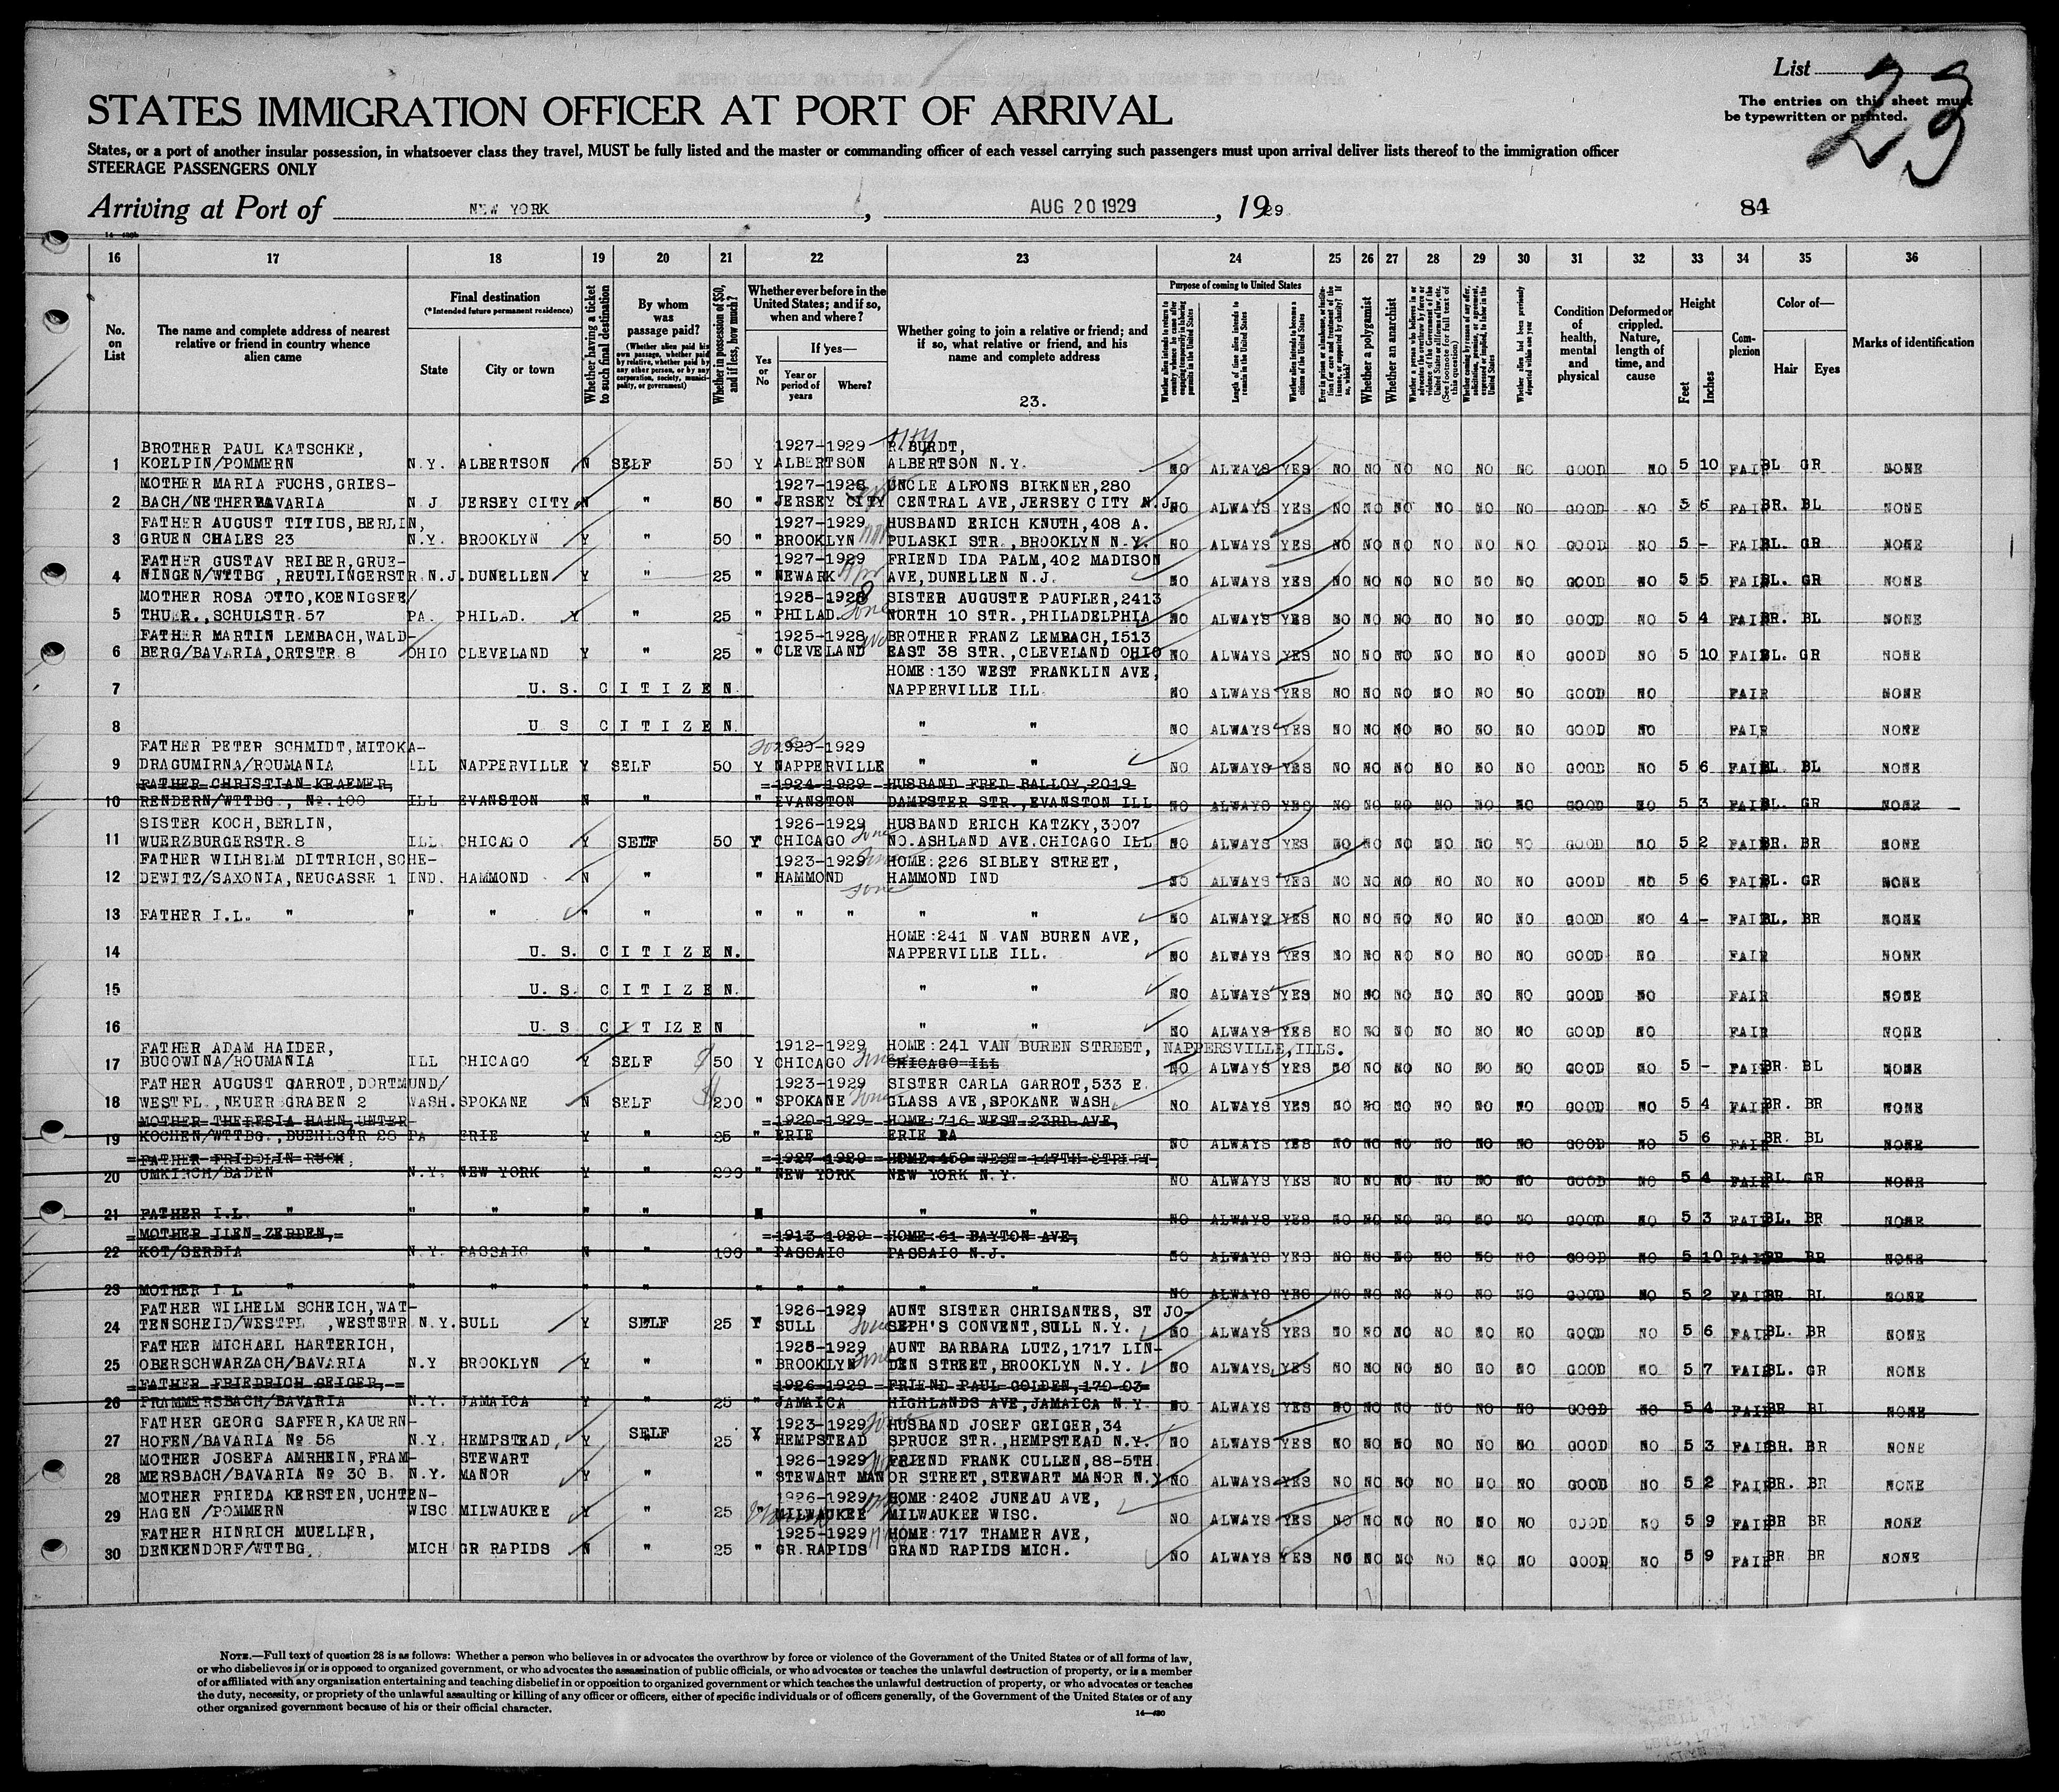 List 23
The entries on this sheet must
be typewritten or printed.
STATES IMMIGRATION OFFICER AT PORT OF ARRIVAL
States, or a port of another insular possession, in whatsoever class they travel, MUST be fully listed and the master or commanding officer of each vessel carrying such passengers must upon arrival deliver lists thereof to the immigration officer
STEERAGE PASSENGERS ONLY
Arriving at Port of NEW YORK, AUG 20 1929, 1929 84
16 17 18 19 20 21 22 23 24 25 26 27 28 29 30 31 32 33 34 35 36
No. on List
The name and complete address of nearest relative or friend in country whence alien came
Final destination
(*Intended future permanent residence)
State City or town
Whether having a ticket to such final destination
By whom was passage paid?
(Whether alien paid his own passage, whether paid by relative, whether paid by any other person, or by any corporation, society, municipality, or government)
Whether in possession of $50, and if less, how much?
Whether ever before in the United States; and if so, when and where?
Yes or No
If yes—
Year or period of years Where?
Whether going to join a relative or friend; and if so, what relative or friend, and his name and complete address
23.
Purpose of coming to United States
Length of time alien intends to remain in the United States
Whether alien intends to become a citizen of the United States
Whether a polygamist
Whether an anarchist
Whether alien had been previously deported within one year
Condition of health, mental and physical
Deformed or crippled. Nature, length of time, and cause
Height
Feet Inches
Complexion
Color of—
Hair Eyes
Marks of identification
BROTHER PAUL KATSCHKE, 1927-1929 R. BURDT,
1 KOELPIN/POMMERN N.Y. ALBERTSON N SELF 50 Y ALBERTSON ALBERTSON N.Y. NO ALWAYS YES NO NO NO NO NO NO GOOD NO 5 10 FAIR BL GR NONE
MOTHER MARIA FUCHS, GRIES- 1927-1928 UNCLE ALFONS BIRKNER, 280
2 BACH/NETHERBAVARIA N.J JERSEY CITY N " 50 " JERSEY CITY CENTRAL AVE, JERSEY CITY N.J. NO ALWAYS YES NO NO NO NO NO NO GOOD NO 5 6 FAIR BR. BL NONE
FATHER AUGUST TITIUS, BERLIN, 1927-1929 HUSBAND ERICH KNUTH, 408 A.
3 GRUEN CHALES 23 N.Y. BROOKLYN Y " 50 " BROOKLYN PULASKI STR., BROOKLYN N.Y. NO ALWAYS YES NO NO NO NO NO NO GOOD NO 5 - FAIR BL. GR NONE
FATHER GUSTAV REIBER, GRUE- 1927-1929 FRIEND IDA PALM, 402 MADISON
4 NINGEN/WTTBG, REUTLINGERSTR. N.J. DUNELLEN Y " 25 " NEWARK AVE, DUNELLEN N.J. NO ALWAYS YES NO NO NO NO NO NO GOOD NO 5 5 FAIR BL. GR NONE
MOTHER ROSA OTTO, KOENIGSFE/ 1928 SISTER AUGUSTE PAUFLER, 2413
5 THUER., SCHULSTR.57 PA. PHILAD. Y " 25 " PHILAD. NORTH 10 STR., PHILADELPHIA NO ALWAYS YES NO NO NO NO NO NO GOOD NO 5 4 FAIR BR. BL NONE
FATHER MARTIN LEMBACH, WALD- 1925-1928 BROTHER FRANZ LEMBACH, 1513
6 BERG/BAVARIA, ORTSTR.8 OHIO CLEVELAND Y " 25 " CLEVELAND EAST 38 STR., CLEVELAND OHIO NO ALWAYS YES NO NO NO NO NO NO GOOD NO 5 10 FAIR BL. GR NONE
HOME: 130 WEST FRANKLIN AVE,
7 U. S. CITIZEN. NAPPERVILLE ILL NO ALWAYS YES NO NO NO NO NO NO GOOD NO FAIR NONE
8 U S CITIZEN. " " NO ALWAYS YES NO NO NO NO NO NO GOOD NO FAIR NONE
FATHER PETER SCHMIDT, MITOKA- 1929
9 DRAGUMIRNA/ROUMANIA ILL NAPPERVILLE Y SELF 50 Y NAPPERVILLE " " NO ALWAYS YES NO NO NO NO NO NO GOOD NO 5 6 FAIR BL BL NONE
FATHER CHRISTIAN KRAEMER, 1924-1929 HUSBAND FRED BALLOY, 2019
10 RENDERN/WTTBG., No.100 ILL EVANSTON N " " EVANSTON DAMPSTER STR., EVANSTON ILL NO ALWAYS YES NO NO NO NO NO NO GOOD NO 5 3 FAIR BL. GR NONE
SISTER KOCH, BERLIN, 1926-1929 HUSBAND ERICH KATZKY, 3007
11 WUERZBURGERSTR.8 ILL. CHICAGO Y SELF 50 Y CHICAGO NO. ASHLAND AVE. CHICAGO ILL NO ALWAYS YES NO NO NO NO NO NO GOOD NO 5 2 FAIR BR. BR NONE
FATHER WILHELM DITTRICH, SCHE- 1923-1929 HOME: 226 SIBLEY STREET,
12 DEWITZ/SAXONIA, NEUGASSE 1 IND. HAMMOND N " " HAMMOND HAMMOND IND NO ALWAYS YES NO NO NO NO NO NO GOOD NO 5 6 FAIR BL. GR NONE
13 FATHER I.L. " " " " " " " " " " NO ALWAYS YES NO NO NO NO NO NO GOOD NO 4 - FAIR BL. BR NONE
HOME: 241 N VAN BUREN AVE,
14 U. S. CITIZEN. NAPPERVILLE ILL. NO ALWAYS YES NO NO NO NO NO NO GOOD NO FAIR NONE
15 U. S. CITIZEN. " " NO ALWAYS YES NO NO NO NO NO NO GOOD NO FAIR NONE
16 U. S CITIZEN " " NO ALWAYS YES NO NO NO NO NO NO GOOD NO FAIR NONE
FATHER ADAM HAIDER, 1912-1929 HOME: 241 VAN BUREN STREET, NAPPERSVILLE, ILLS.
17 BUCOWINA/ROUMANIA ILL CHICAGO Y SELF 50 Y CHICAGO CHICAGO ILL NO ALWAYS YES NO NO NO NO NO NO GOOD NO 5 - FAIR BR. BL NONE
FATHER AUGUST GARROT, DORTMUND/ 1923-1929 SISTER CARLA GARROT, 533 E.
18 WESTFL., NEUER GRABEN 2 WASH. SPOKANE N SELF 200 " SPOKANE GLASS AVE, SPOKANE WASH. NO ALWAYS YES NO NO NO NO NO NO GOOD NO 5 4 FAIR BR. BR NONE
MOTHER THERESIA HAHN, UNTER- 1920-1929 HOME: 716 WEST 23RD AVE,
19 KOCHEN/WTTBG., DUEHLSTR 28 PA ERIE Y " 25 " ERIE ERIE PA NO ALWAYS YES NO NO NO NO NO NO GOOD NO 5 6 FAIR BR. BL NONE
FATHER FRIDOLIN RUCH, 1927-1929 HOME: 459 WEST 147TH STREET
20 UMKIRCH/BADEN N.Y. NEW YORK Y " 200 " NEW YORK NEW YORK N.Y. NO ALWAYS YES NO NO NO NO NO NO GOOD NO 5 4 FAIR BL. GR NONE
21 FATHER I.L. " " " " " " " NO ALWAYS YES NO NO NO NO NO NO GOOD NO 5 3 FAIR BL. BR NONE
MOTHER ILEN ZERDEN, 1913-1929 HOME: 61 BAYTON AVE,
22 KOT/SERBIA N.Y. PASSAIC N " 100 " PASSAIC PASSAIC N.J. NO ALWAYS YES NO NO NO NO NO NO GOOD NO 5 10 FAIR BR BR NONE
23 MOTHER I L " " " " " " " " " " NO ALWAYS YES NO NO NO NO NO NO GOOD NO 5 2 FAIR BR. BL NONE
FATHER WILHELM SCHEICH, WAT- 1926-1929 AUNT SISTER CHRISANTES, ST JO-
24 TENSCHEID/WESTFL, WESTSTR N.Y. SULL SELF 25 Y SULL SEPH'S CONVENT, SULL N.Y. NO ALWAYS YES NO NO NO NO NO NO GOOD NO 5 6 FAIR BL. BR NONE
FATHER MICHAEL HARTERICH, 1928-1929 AUNT BARBARA LUTZ, 1717 LIN-
25 OBERSCHWARZACH/BAVARIA N.Y BROOKLYN Y " " BROOKLYN DEN STREET, BROOKLYN N.Y. NO ALWAYS YES NO NO NO NO NO NO GOOD NO 5 7 FAIR BL. GR NONE
FATHER FRIEDRICH GEIGER, 1926-1929 FRIEND PAUL GOLDEN, 170-03
26 FRAMMERSBACH/BAVARIA N.Y. JAMAICA Y " 25 " JAMAICA HIGHLANDS AVE, JAMAICA N.Y. NO ALWAYS YES NO NO NO NO NO NO GOOD NO 5 4 FAIR BR BL NONE
FATHER GEORG SAFFER, KAUERN- 1923-1929 HUSBAND JOSEF GEIGER, 34
27 HOFEN/BAVARIA No.58 N.Y. HEMPSTEAD, Y SELF 25 Y HEMPSTEAD SPRUCE STR., HEMPSTEAD N.Y. NO ALWAYS YES NO NO NO NO NO NO GOOD NO 5 3 FAIR BR. BR NONE
MOTHER JOSEFA AMRHEIN, FRAM- STEWART 1926-1929 FRIEND FRANK CULLEN, 88-5TH
28 MERSBACH/BAVARIA No 30 B. N.Y. MANOR Y " " STEWART MANOR STREET, STEWART MANOR N.Y NO ALWAYS YES NO NO NO NO NO NO GOOD NO 5 2 FAIR BR. BR NONE
MOTHER FRIEDA KERSTEN, UCHTEN- 1926-1929 HOME: 2402 JUNEAU AVE,
29 HAGEN /POMMERN WISC MILWAUKEE Y " 25 " MILWAUKEE MILWAUKEE WISC. NO ALWAYS YES NO NO NO NO NO NO GOOD NO 5 9 FAIR BR BR NONE
FATHER HINRICH MUELLER, 1925-1929 HOME: 717 THAMER AVE,
30 DENKENDORF/WTTBG. MICH GR RAPIDS N " 25 " GR.RAPIDS GRAND RAPIDS MICH. NO ALWAYS YES NO NO NO NO NO NO GOOD NO 5 9 FAIR BR BR NONE
NOTE.—Full text of question 28 is as follows: Whether a person who believes in or advocates the overthrow by force or violence of the Government of the United States or of all forms of law,
or who disbelieves in or is opposed to organized government, or who advocates the assassination of public officials, or who advocates or teaches the unlawful destruction of property, or is a member
of or affiliated with any organization entertaining and teaching disbelief in or opposition to organized government or which teaches the unlawful destruction of property, or who advocates or teaches
the duty, necessity, or propriety of the unlawful assaulting or killing of any officer or officers, either of specific individuals or of officers generally, of the Government of the United States or of any
other organized government because of his or their official character.
14—480